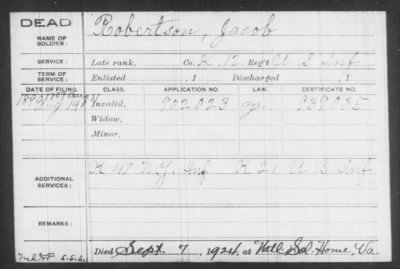 DEAD
NAME OF SOLDIER: Robertson, Jacob
SERVICE: Late rank, Co. K, 12 Reg't U S Inf
TERM OF SERVICE: Enlisted , 1 Discharged , 1
DATE OF FILING. CLASS. APPLICATION NO. LAW. CERTIFICATE NO.
Invalid, 902023 939085
Widow,
Minor,
ADDITIONAL SERVICES: K 47 N.Y. Inf K 21 U S Inf
REMARKS:
Died Sept. 7, 1924, at Natl. Sol. Home Va.